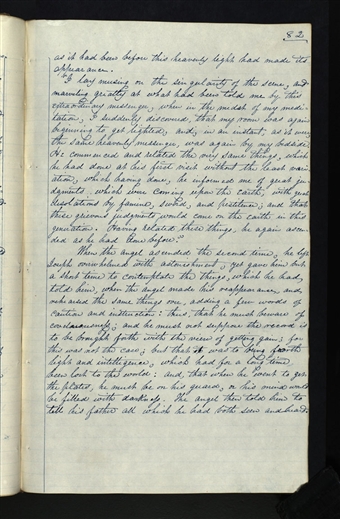 82
as it had been before this heavenly light had made its
appearance.
"I lay musing on the singularity of the scene, and
marveling greatly at what had been told me by this
extraordinary messenger, when in the midst of my medi-
tation, I suddenly discovered, that my room was again
beginning to get lighted, and, in an instant, as it were
the same heavenly messenger, was again by my bedside.
He commenced and related the very same things, which
he had done at his first visit without the least vari-
ation, which having done, he informed me of great ju-
dgments which were coming upon the earth; with great
desolations by famine, sword, and pestilence; and that
these grievous judgments would come on the earth in this
generation. Having related these things, he again ascen-
ded as he had done before."
When the angel ascended the second time, he left
Joseph overwhelmed with astonishment, yet gave him but
a short time to contemplate the things, which he had
told him, when the angel made his reappearance and
rehearsed the same things over, adding a few words of
caution and instruction: thus, that he must beware of
covetousness; and he must not suppose the record is
to be brought forth with the view of getting gain; for
this was not the case; but that it was to bring forth
light and intelligence, which had for a long time
been lost to the world: and, that when he went to get
the plates, he must be on his guard, or his mind would
be filled with darkness. The angel then told him to
tell his father all which he had both seen and heard.